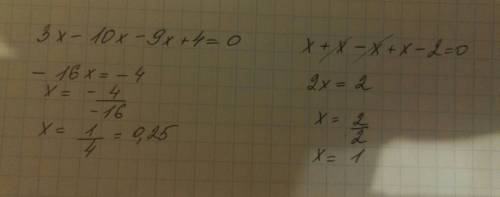 3x - 10x - 9x + 4 = 0
- 16x = - 4
x = - 4 / -16
x = 1/4 = 0,25
x + x - x + x - 2 = 0
2x = 2
x = 2/2
x = 1